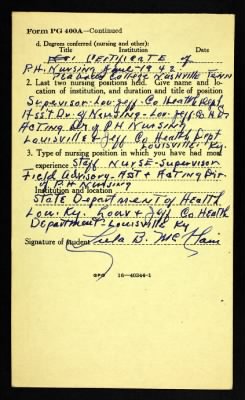 Form PG 400A—Continued
d. Degrees conferred (nursing and other):
Title Institution Date
Certificate of
P.H. Nursing June 1942.
Peabody College Nashville Tenn
2. Last two nursing positions held. Give name and location of institution, and duration and title of position
Supervisor-Lou-Jeff Co Health Dept
Ass't Dir of Nursing-Lou-Jeff Co H.D.
Acting Dir of P.H. Nursing
Louisville & Jeff Co. Health Dept
Louisville, Ky.
3. Type of nursing position in which you have had most
experience Staff Nurse-Supervisor
Field Advisory-Asst & Acting Dir
of P.H. Nursing
Institution and location
State Department of Health
Lou. Ky. Lou & Jeff Co Health
Department-Louisville Ky
Signature of student B. McClain
GPO 16—40344-1